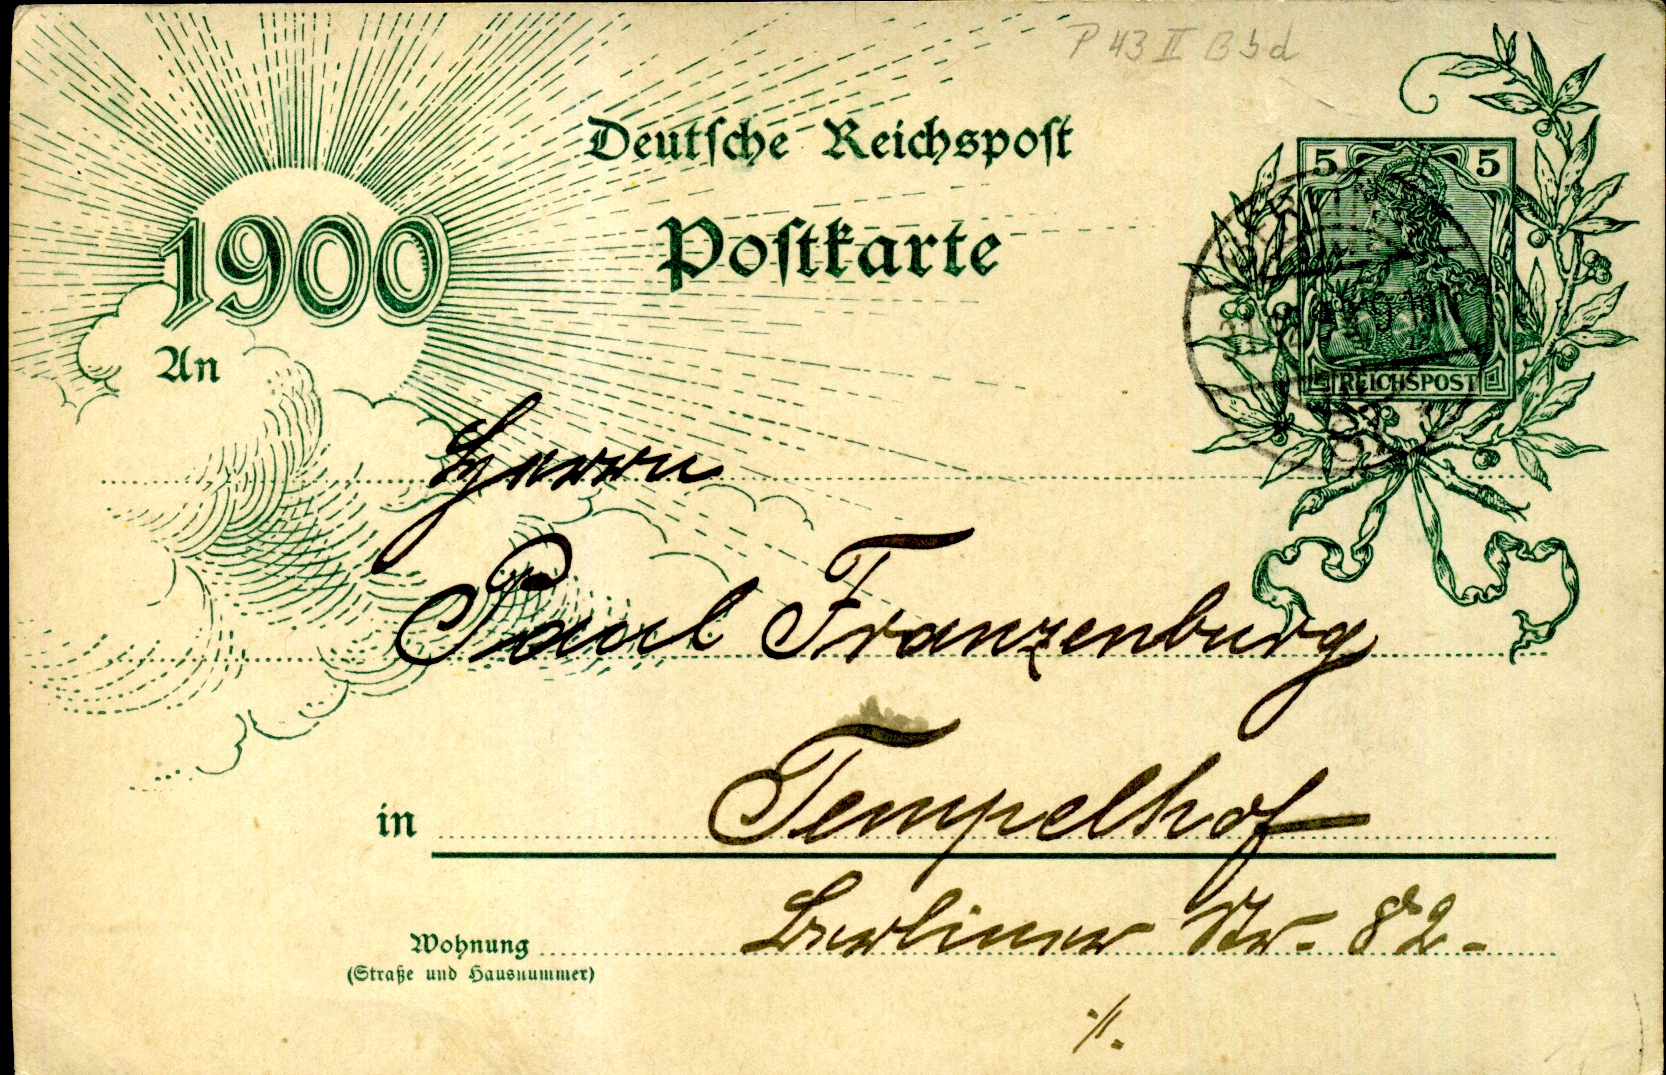 P 43 II B b d
Deutsche Reichspost
5 5
1900
Postkarte
REICHSPOST
An
Herrn
Paul Franzenburg
in Tempelhof
Berliner Str. 82.
Wohnung
(Straße und Hausnummer)